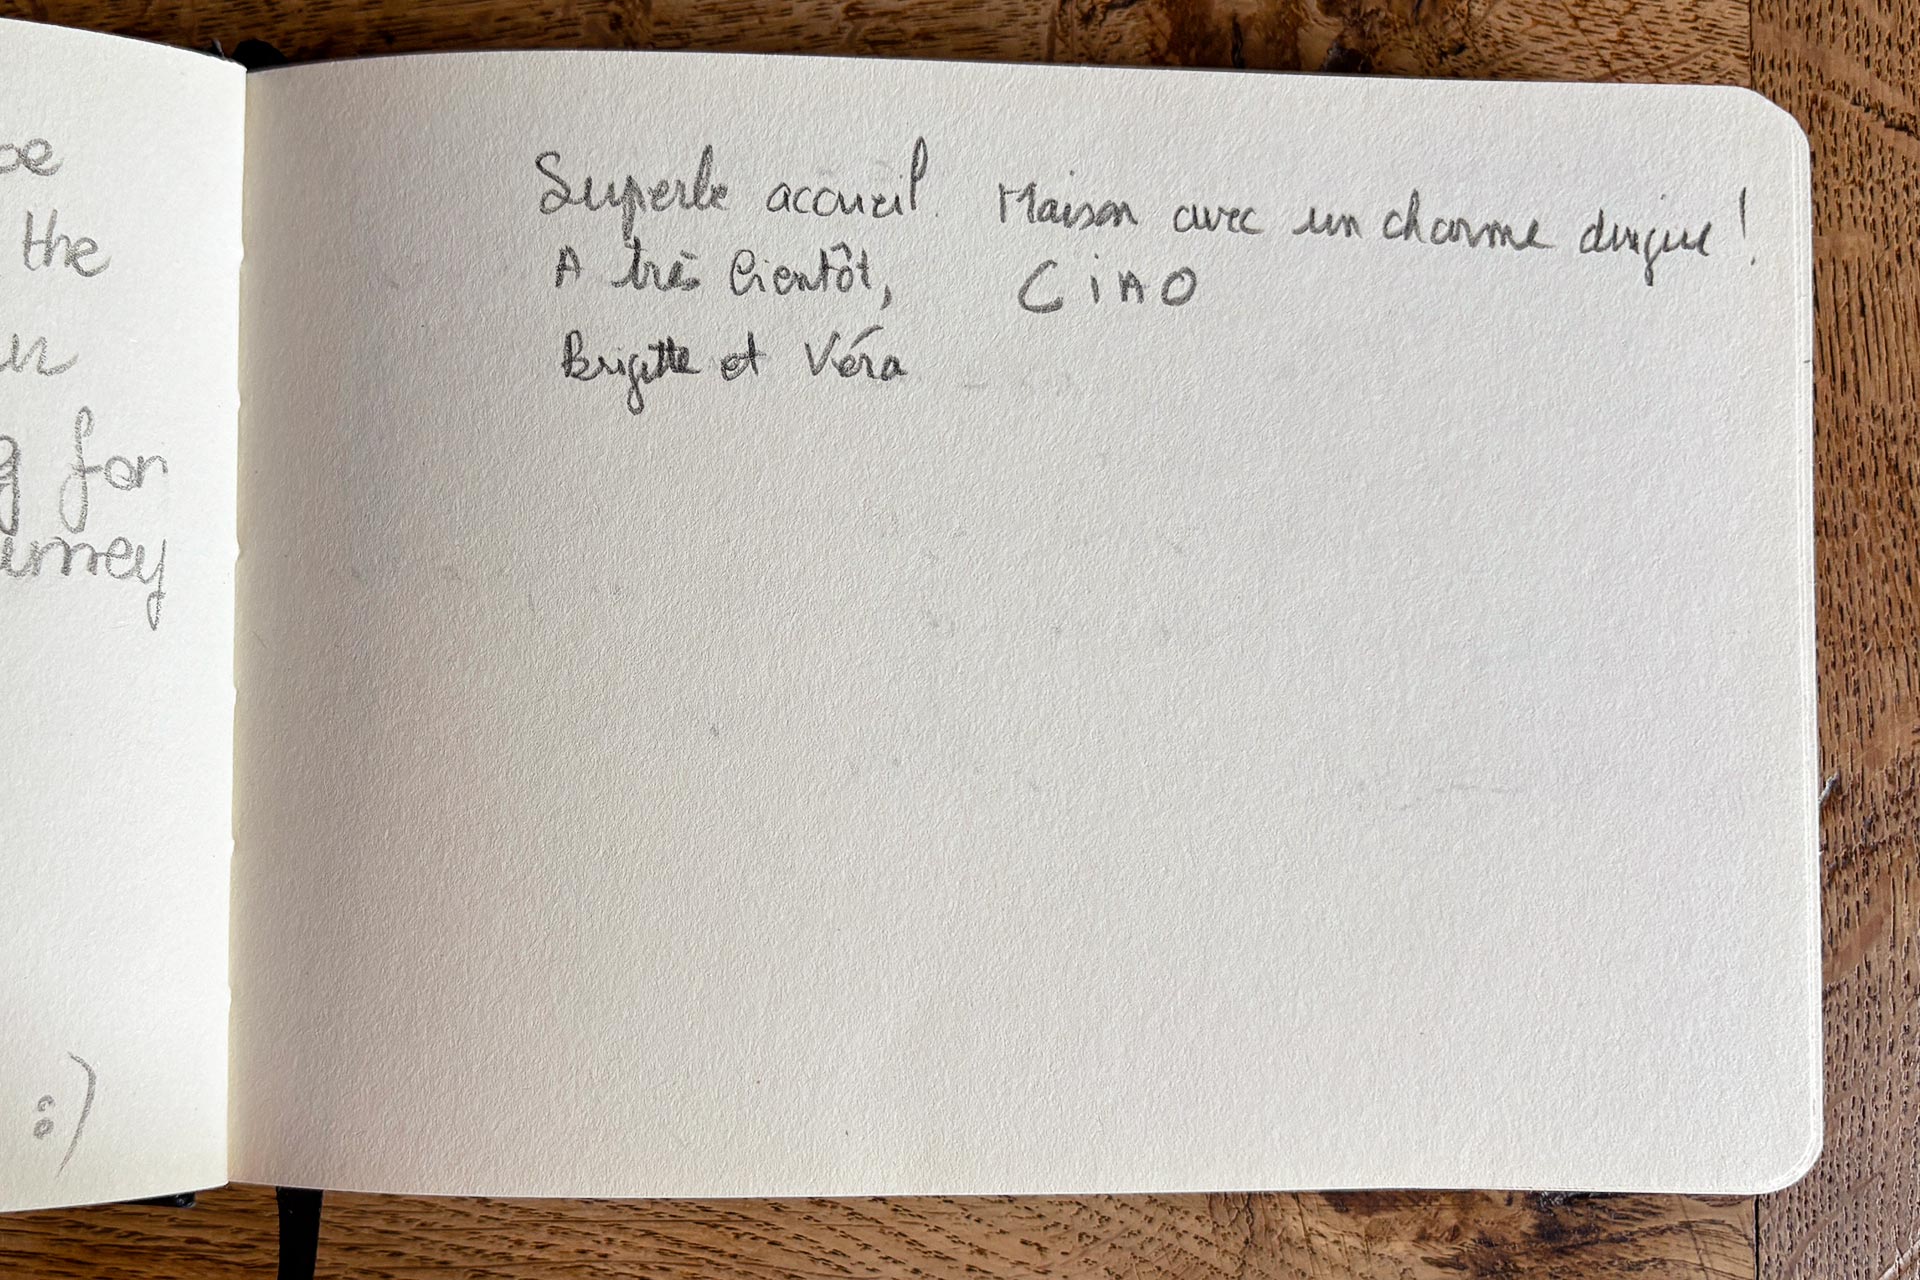 be
the
for
:)
Superbe accueil. Maison avec un charme dingue !
A très bientôt, CIAO
Brigitte et Véra